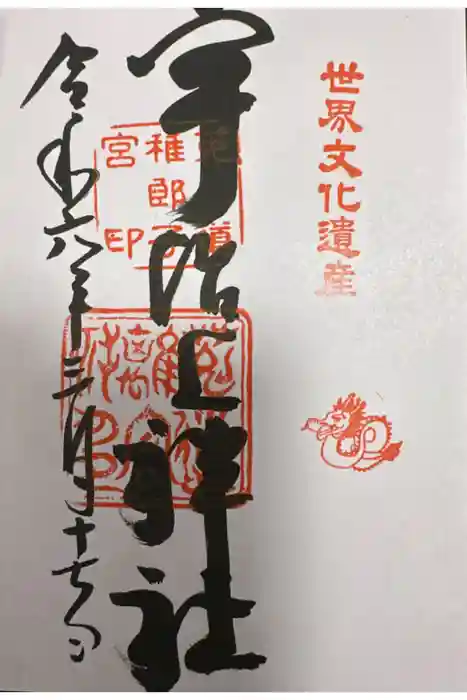 世界文化遺産
宇治上神社
菟道稚郎子宮印
令和六年三月十七日